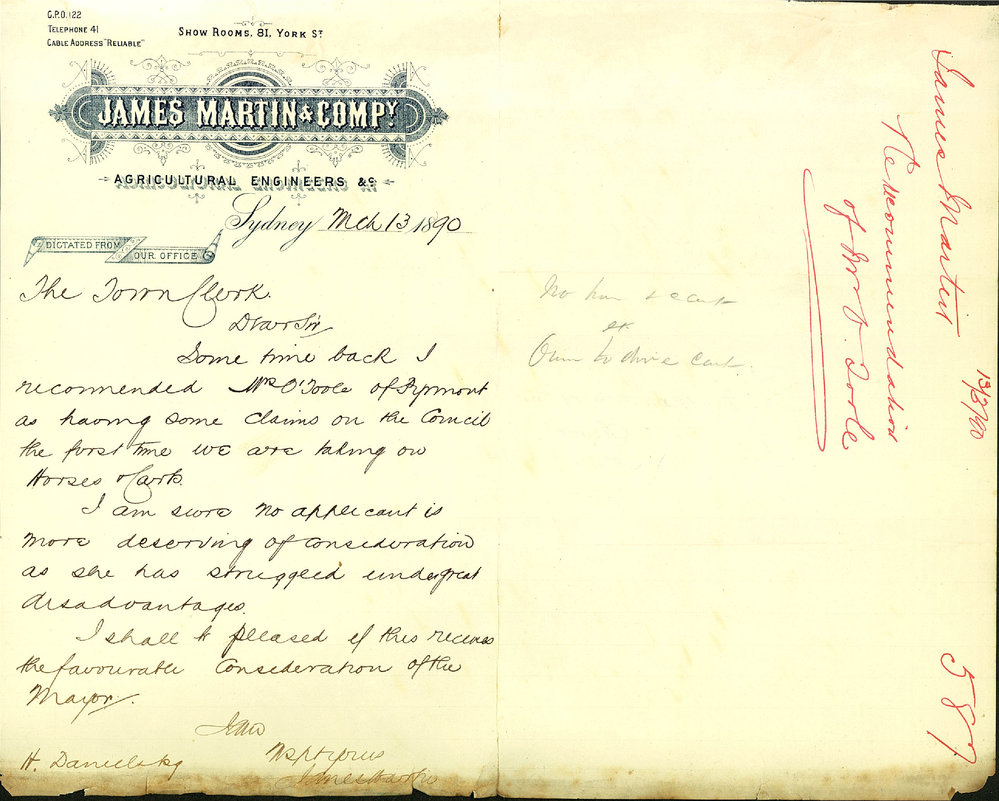 G.P.O. 122
TELEPHONE 41
CABLE ADDRESS "RELIABLE"
SHOW ROOMS, 81, YORK ST
JAMES MARTIN & COMPY
AGRICULTURAL ENGINEERS &c
Sydney Mch 13 1890
DICTATED FROM
OUR OFFICE
The Town Clerk.
Dear Sir
Some time back I
recommended Mrs O'Toole of Pyrmont
as having some claims on the Council
the first time we are taking on
Horses & Carts.
I am sure no applicant is
more deserving of consideration
as she has struggled under great
disadvantages.
I shall be pleased if this receives
the favourable consideration of the
Mayor.
I am
Yours
James Martin
H. Danielsky
No horse & cart
to drive cart.
James Martin
Recommendation
of Mrs O. Toole
13/3/90
587